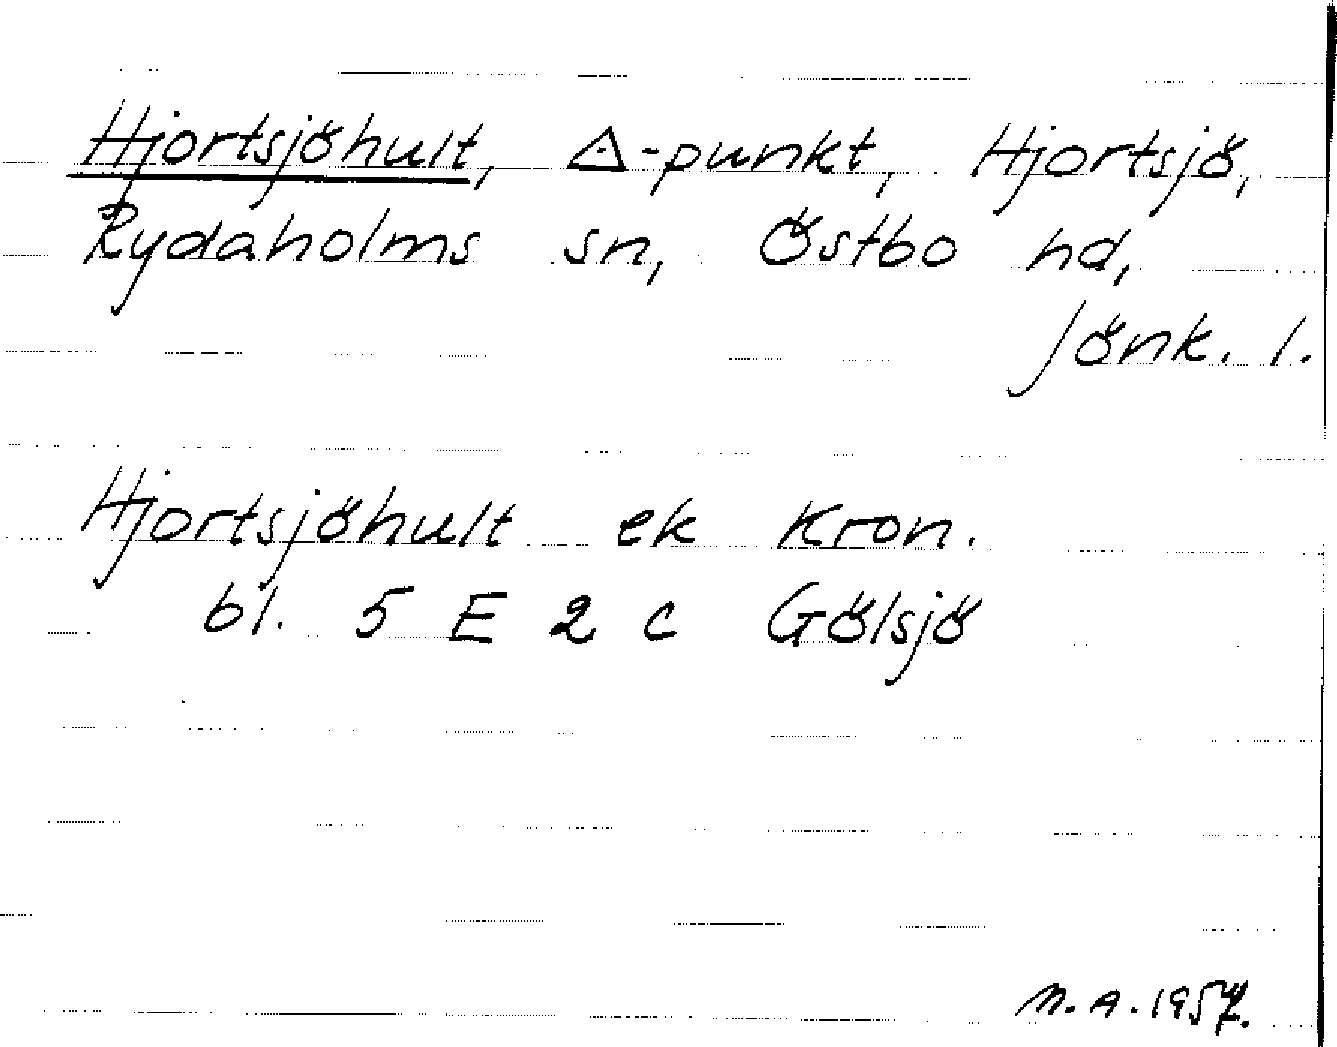 Hjortsjöhult, △-punkt, Hjortsjö,
Rydaholms sn, Östbo hd,
Jönk. l.
Hjortsjöhult ek Kron.
bl. 5 E 2 c Gölsjö
N.A. 1957.